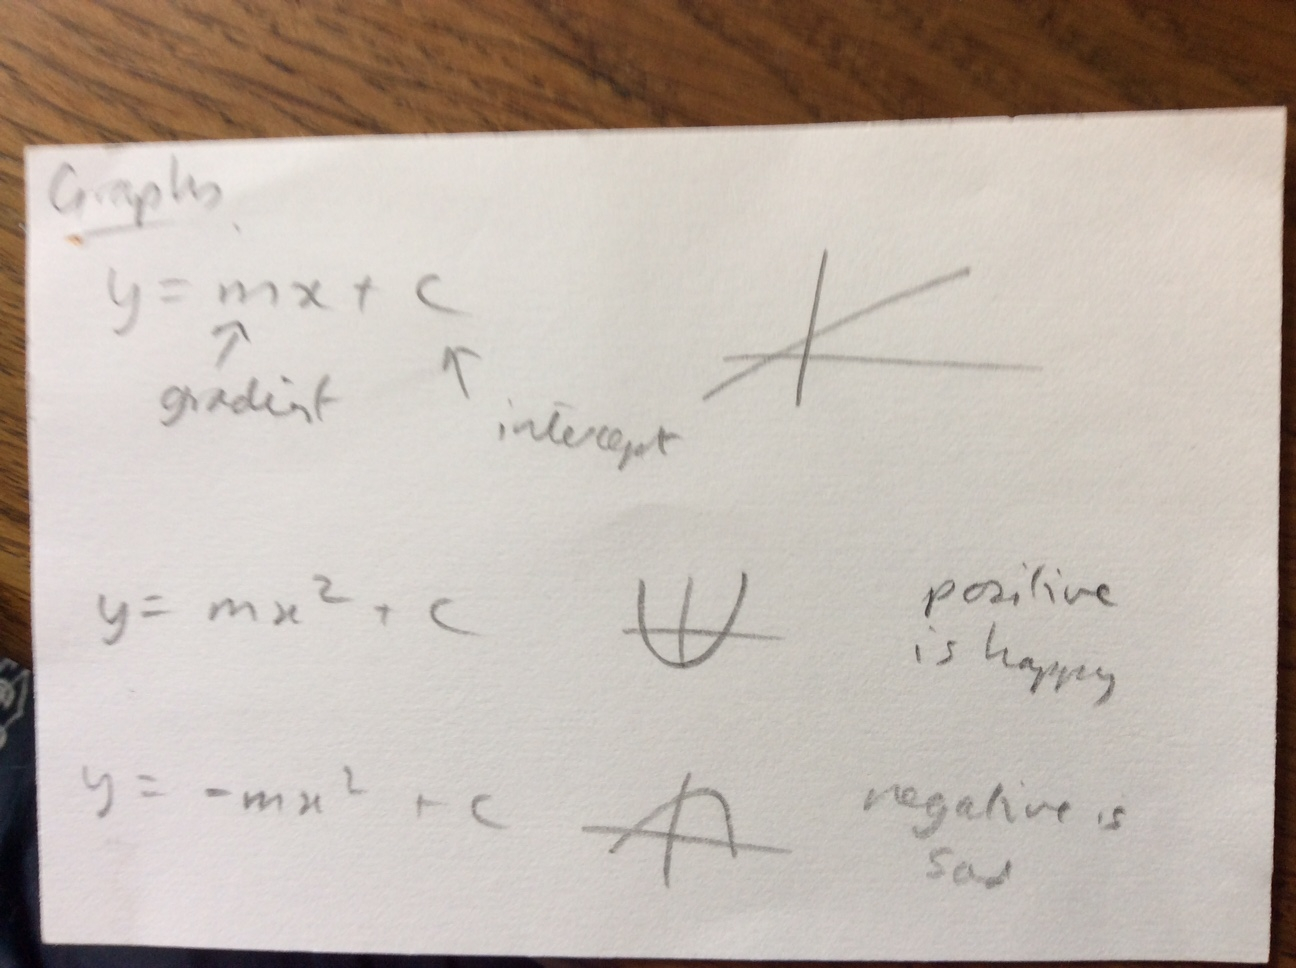 Graphs
y = mx + c
gradient
intercept
y = mx² + c
positive
is happy
y = -mx² + c
negative is
sad